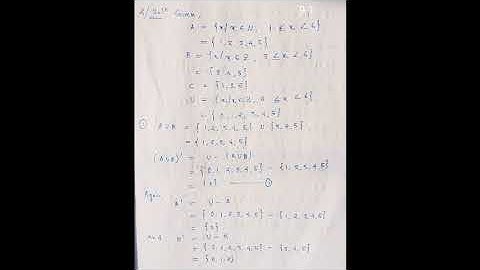 Given,
A = {x/x ∈ N, 1 ≤ x < 6}
= {1, 2, 3, 4, 5}
B = {x/x ∈ Z, 3 ≤ x < 6}
= {3, 4, 5}
C = {1, 2, 5}
U = {x/x ∈ Z, 0 ≤ x < 6}
= {0, 1, 2, 3, 4, 5}
① A∪B = {1, 2, 3, 4, 5} ∪ {3, 4, 5}
= {1, 2, 3, 4, 5}
(A∪B)' = U - (A∪B)
= {0, 1, 2, 3, 4, 5} - {1, 2, 3, 4, 5}
= {0} ①
Again
A' = U - A
= {0, 1, 2, 3, 4, 5} - {1, 2, 3, 4, 5}
= {0}
And B' = U - B
= {0, 1, 2, 3, 4, 5} - {3, 4, 5}
= {0, 1, 2}